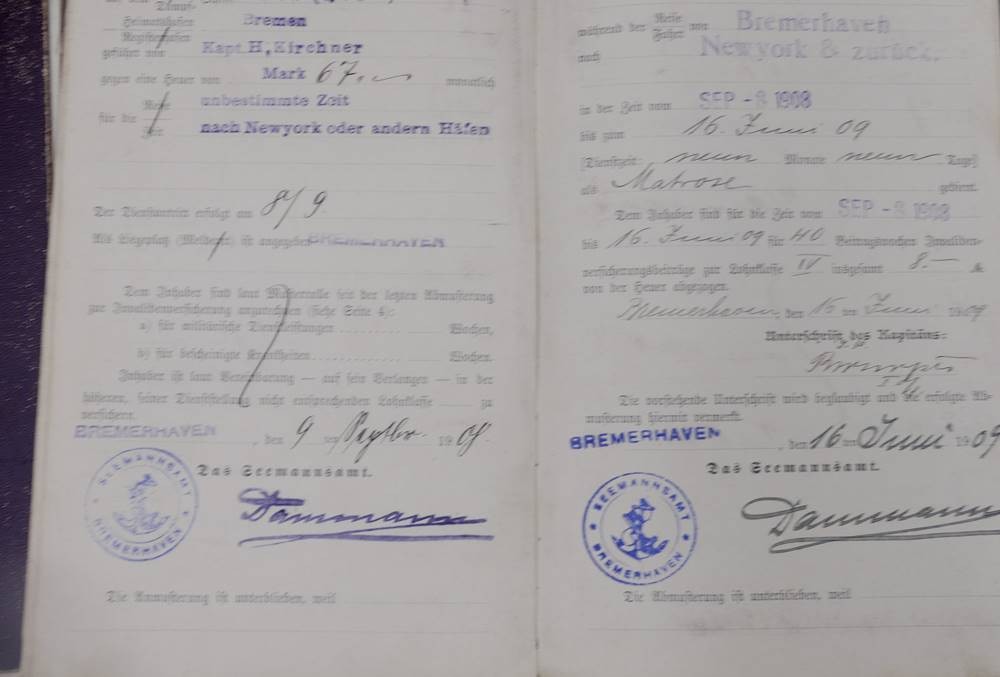 Dampf-
Heimatshafen Bremen
Registerhafen
geführt von Kapt. H, Kirchner
gegen eine Heuer von Mark 67.— monatlich
Reise unbestimmte Zeit
für die
Zeit nach Newyork oder andern Häfen
Der Dienstantritt erfolgt am 8/9.
Als Liegeplatz (Meldeort) ist angegeben BREMERHAVEN
Dem Inhaber sind laut Musterrolle seit der letzten Abmusterung
zur Invalidenversicherung anzurechnen (siehe Seite 4):
a) für militärische Dienstleistungen Wochen,
b) für bescheinigte Krankheiten Wochen.
Inhaber ist laut Vereinbarung — auf sein Verlangen — in der
höheren, seiner Dienststellung nicht entsprechenden Lohnklasse zu
versichern.
BREMERHAVEN, den 9 ten Septbr. 1908.
Das Seemannsamt.
SEEMANNSAMT BREMERHAVEN
Dammann
Die Anmusterung ist unterblieben, weil
während der Reise von Bremerhaven
Fahrt
nach Newyork & zurück.
in der Zeit vom SEP -8 1908
bis zum 16. Juni 09
[Dienstzeit: neun Monate neun Tage]
als Matrose gedient.
Dem Inhaber sind für die Zeit vom SEP -8 1908
bis 16. Juni 09 für 40 Beitragswochen Invaliden-
versicherungsbeiträge zur Lohnklasse IV insgesamt 8.—
von der Heuer abgezogen.
Bremerhaven, den 16 ten Juni 1909
Unterschrift des Kapitäns:
Die vorstehende Unterschrift wird beglaubigt und die erfolgte Ab-
musterung hiermit vermerkt.
BREMERHAVEN, den 16 ten Juni 1909
Das Seemannsamt.
SEEMANNSAMT BREMERHAVEN
Dammann
Die Abmusterung ist unterblieben, weil